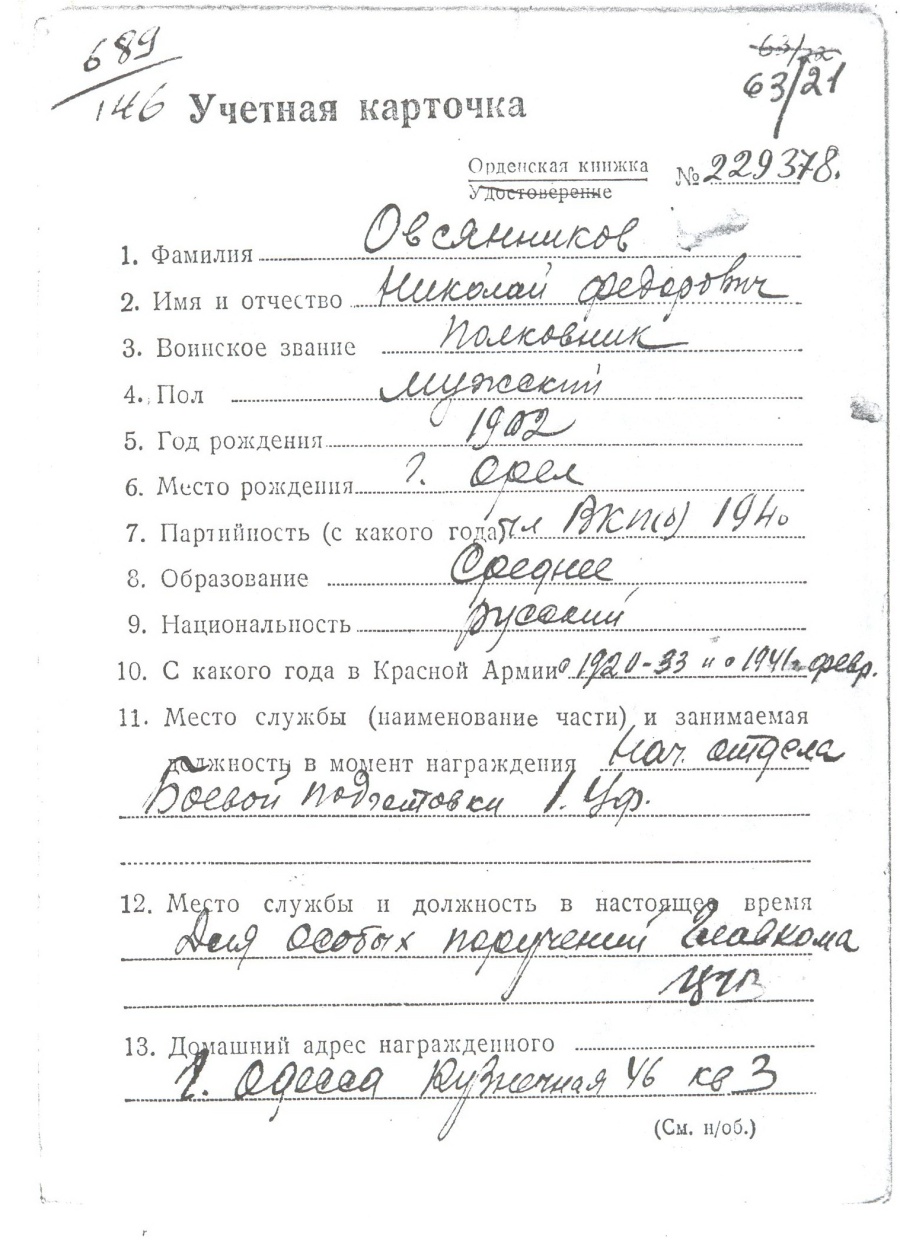 689
146
63/22
63/21
Учетная карточка
Орденская книжка
Удостоверение
№ 229378.
1. Фамилия Овсянников
2. Имя и отчество Николай Федорович
3. Воинское звание Полковник
4. Пол мужский
5. Год рождения 1902
6. Место рождения г. Орел
7. Партийность (с какого года) чл ВКП(б) 1940
8. Образование Среднее
9. Национальность русский
10. С какого года в Красной Армии с 1920-33 и с 1941 февр.
11. Место службы (наименование части) и занимаемая
должность в момент награждения Нач. отдела
Боевой подготовки 1. Уф.
12. Место службы и должность в настоящее время
Для особых поручений Главкома
ЦГВ
13. Домашний адрес награжденного
г. Одесса Кузнечная 46 кв 3
(См. н/об.)